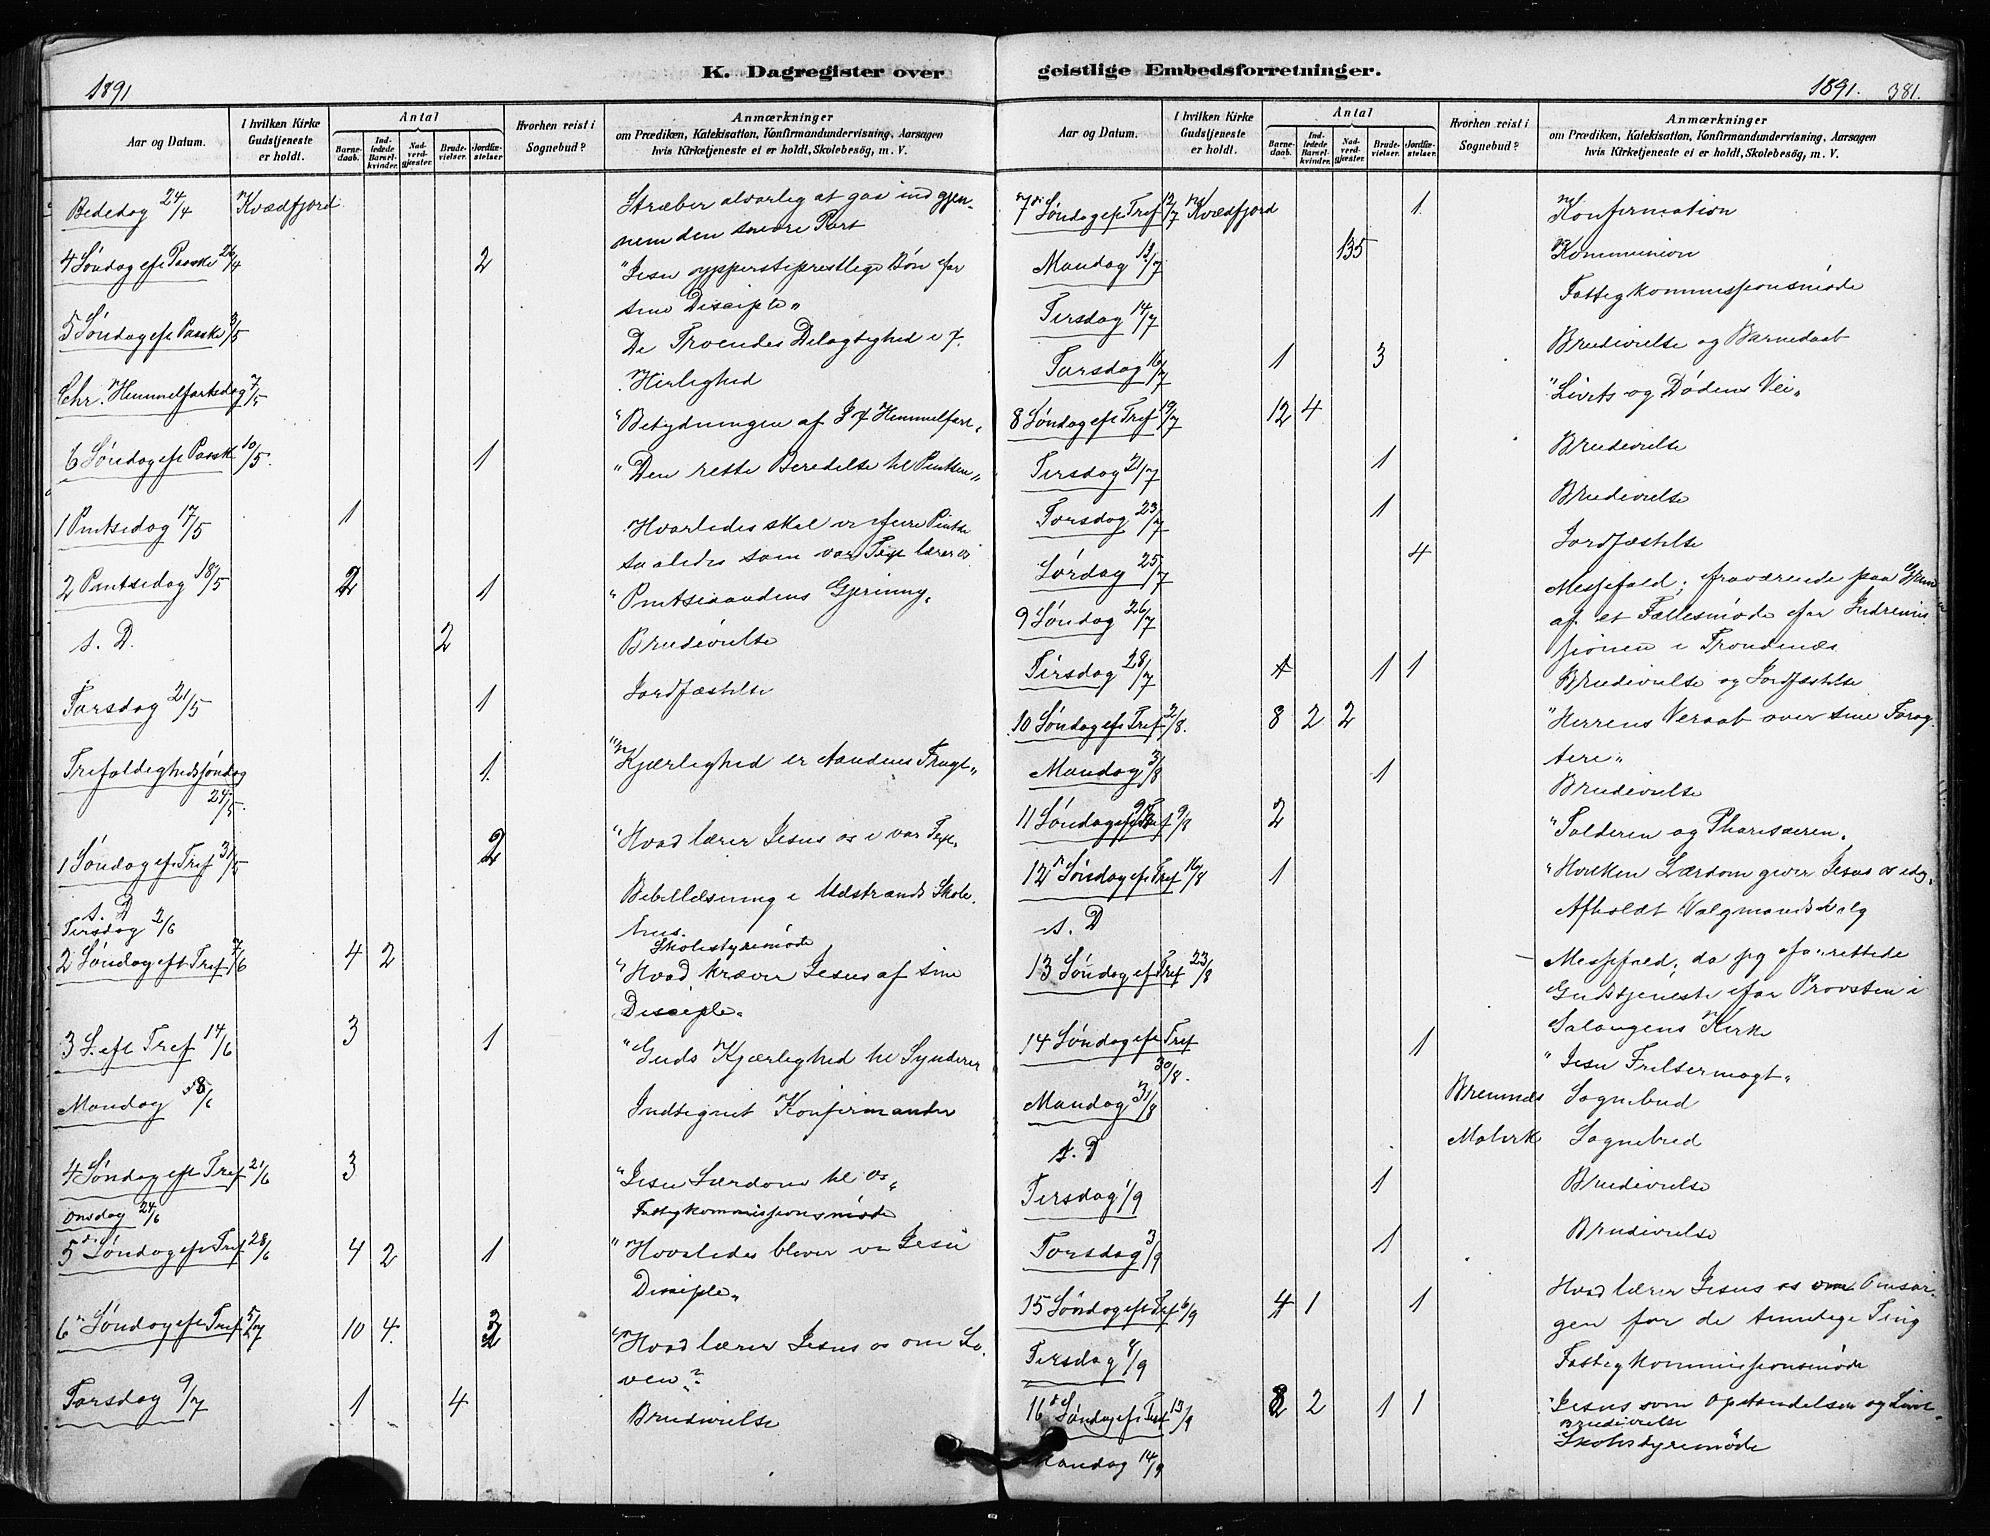 K. Dagregister over
1891
Aar og Datum.
I hvilken Kirke Gudstjeneste er holdt.
Antal
Barnedaab.
Indledede Barselkvinder.
Nadverdgjester.
Brudevielser.
Jordfæstelser
Hvorhen reist i Sognebud?
Anmærkninger
om Prædiken, Katekisation, Konfirmandundervisning, Aarsagen
hvis Kirketjeneste ei er holdt, Skolebesøg, m. V.
Bededag 24/4 Kvædfjord Stræber alvorlig at gaa ind gjen-
nem den snevre Port
4 Søndag eft Paaske 26/4 2 "Jesu ypperstepræstlige Bøn for
sine Disciple"
5 Søndag eft Paaske 3/5 De Troendes Delagtighed i
Herlighed
Chr. Himmelfartsdag 7/5 "Betydningen af Himmelfart"
6 Søndag eft Paask 10/5. 1 "Den rette Beredelse til Pintsen"
1 Pintsedag 17/5 1 Hvorledes skal vi feire Pintse
saaledes som vor Text lærer os
2 Pintsedag 18/5 2 1 "Pintseaandens Gjerning"
s. D. 2 Brudevielse
Torsdag 21/5 1 Jordfæstelse
Trefoldighedssøndag 1. "Kjærlighed er Aandens Frugt"
24/5.
1 Søndag eft Tref 31/5 2 "Hvad lærer Jesus os i vor Text"
s. D Bibellæsning i Udstrands Skole-
hus.
Tirsdag 2/6 Skolestyremöde
2 Søndag eft Tref 7/6 4 2 "Hvad kræver Jesus af sine
Disciple"
3 S. eft Tref 14/6 3 1 "Guds Kjærlighed til Syndere
Mandag 8/6 Indtegnet Konfirmander
4 Søndag eft Tref 21/6 3 "Jesu Lærdom til os"
Onsdag 24/6 Fattigkommissionsmöde
5 Søndag eft Tref 28/6 4 2 1 "Hvorledes bliver vi Jesu
Disciple"
6 Søndag eft Tref 5/7 10 4. "Hvad lærer Jesus os om Lo-
ven"?
Torsdag 9/7 1 4 Brudevielse
geistlige Embedsforretninger.
1891. 381.
Aar og Datum.
I hvilken Kirke Gudstjeneste er holdt.
Antal
Barnedaab.
Indledede Barselkvinder.
Nadverdgjester.
Brudevielser.
Jordfæstelser.
Hvorhen reist i Sognebud?
Anmærkninger
om Prædiken, Katekisation, Konfirmandundervisning, Aarsagen
hvis Kirketjeneste ei er holdt, Skolebesøg, m. V.
7 Søndag eft Tref 12/7 Kvædfjord 1 Konfirmation
Mandag 13/7 135 Kommunion
Tirsdag 14/7 Fattigkommissionsmöde
Torsdag 16/7 1 3 Brudevielse og Barnedaab
8 Søndag eft Tref 19/7 12 4 "Livets og Dødens Vei"
Tirsdag 21/7 1 Brudevielse
Torsdag 23/7 1 Brudevielse
Lørdag 25/7 4 Jordfæstelse
9 Søndag 26/7 Messefald; fraværende paa Grund
af et Fællesmøde for Indremis-
sionen i Trondenæs
Tirsdag 28/7 1 1 1 Brudevielse og Jordfæstelse
10 Søndag eft Tref 2/8. 8 2 2 "Herrens Veraab over sine Forag-
tere"
Mandag 3/8 1 Brudevielse
11 Søndag eft Tref 9/8 2 "Tolderen og Pharisæeren"
12 Søndag eft Tref 16/8 1 "Hvilken Lærdom giver Jesus os idag"
s. D Afholdt Valgmandsvalg
13 Søndag eft Tref 23/8 Messefald; da jeg forrettede
Gudstjeneste for Provsten i
Salangens Kirke
14 Søndag eft Tref 1 "Jesu Frelsermagt"
30/8.
Mandag 31/8 Bremnes Sognebud
s. D Molvik Sognebud
Tirsdag 1/9 1 Brudevielse
Torsdag 3/9 1 Brudevielse
15 Søndag eft Tref 6/9 4 1 1 Hvad lærer Jesus os om Omsor-
gen for de timelige Ting
Tirsdag 8/9 Fattigkommissionsmöde
16 Søndag eft Tref 13/9 2 1 1 "Jesus som Opstandelsen og Livet"
Brudevielse
Mandag 14/9 Skolestyremöde